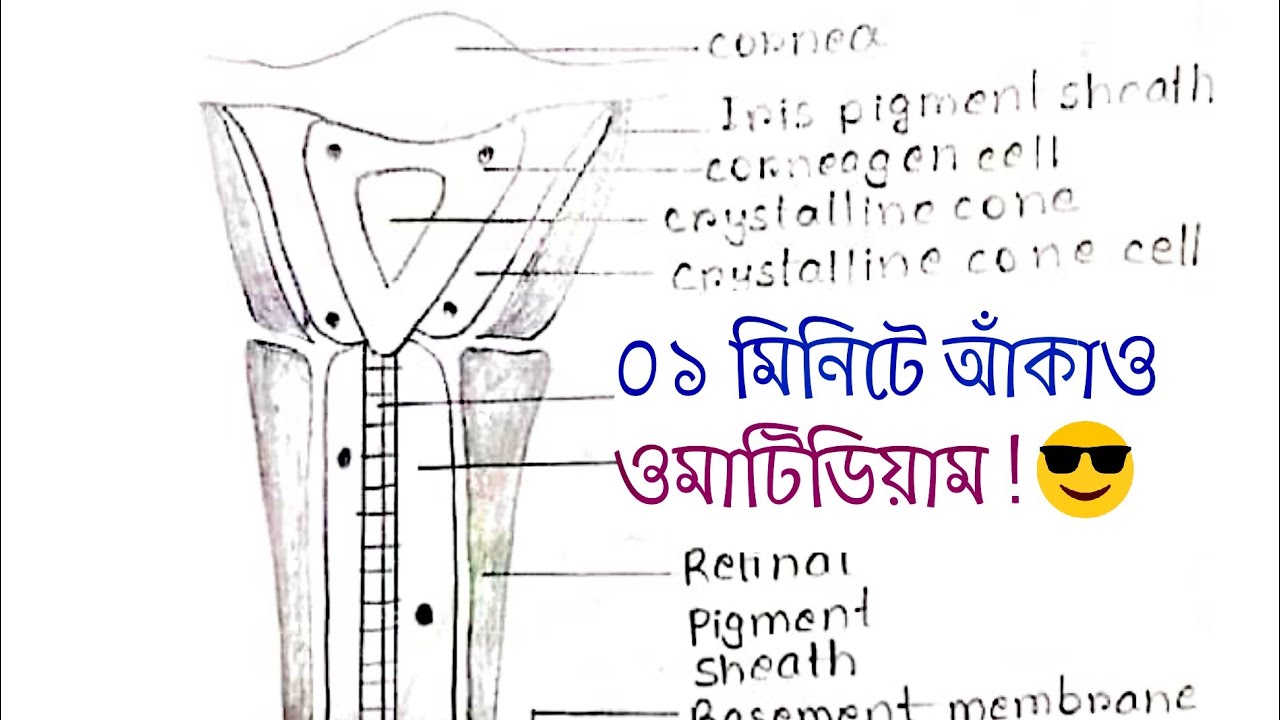 cornea
Iris pigment sheath
corneagen cell
crystalline cone
crystalline cone cell
০১ মিনিটে আঁকাও
ওমাটিডিয়াম !
Retinal
Pigment
Sheath
Basement membrane